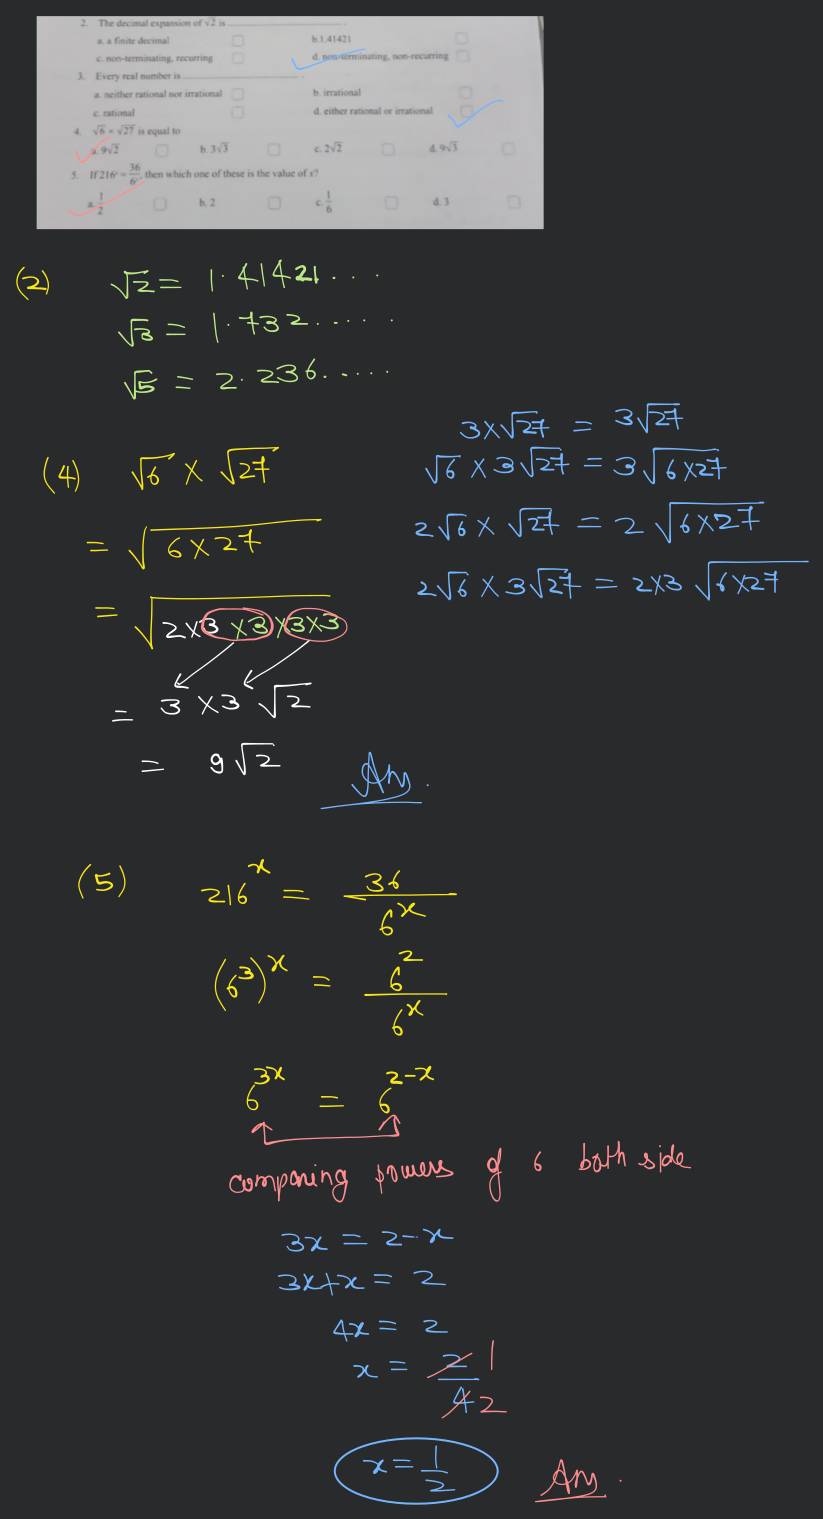 2. The decimal expansion of √2 is
a. a finite decimal b. 1.41421
c. non-terminating, recurring d. non-terminating, non-recurring
3. Every real number is
a. neither rational nor irrational b. irrational
c. rational d. either rational or irrational
4. √6 × √27 is equal to
a. 9√2 b. 3√3 c. 2√2 d. 9√3
5. If 216ˣ = 36/6ˣ, then which one of these is the value of x?
a. 1/2 b. 2 c. 1/6 d. 3
(2) √2 = 1.41421....
√3 = 1.732......
√5 = 2.236......
3×√27 = 3√27
√6 × 3√27 = 3√6×27
2√6 × √27 = 2√6×27
2√6 × 3√27 = 2×3√6×27
(4) √6 × √27
= √6×27
= √2×3×3×3×3
= 3×3√2
= 9√2 Ans.
(5) 216ˣ = 36/6ˣ
(6³)ˣ = 6²/6ˣ
6³ˣ = 6²⁻ˣ
comparing powers of 6 both side
3x = 2-x
3x+x = 2
4x = 2
x = 2/4 1/2
x = 1/2 Ans.